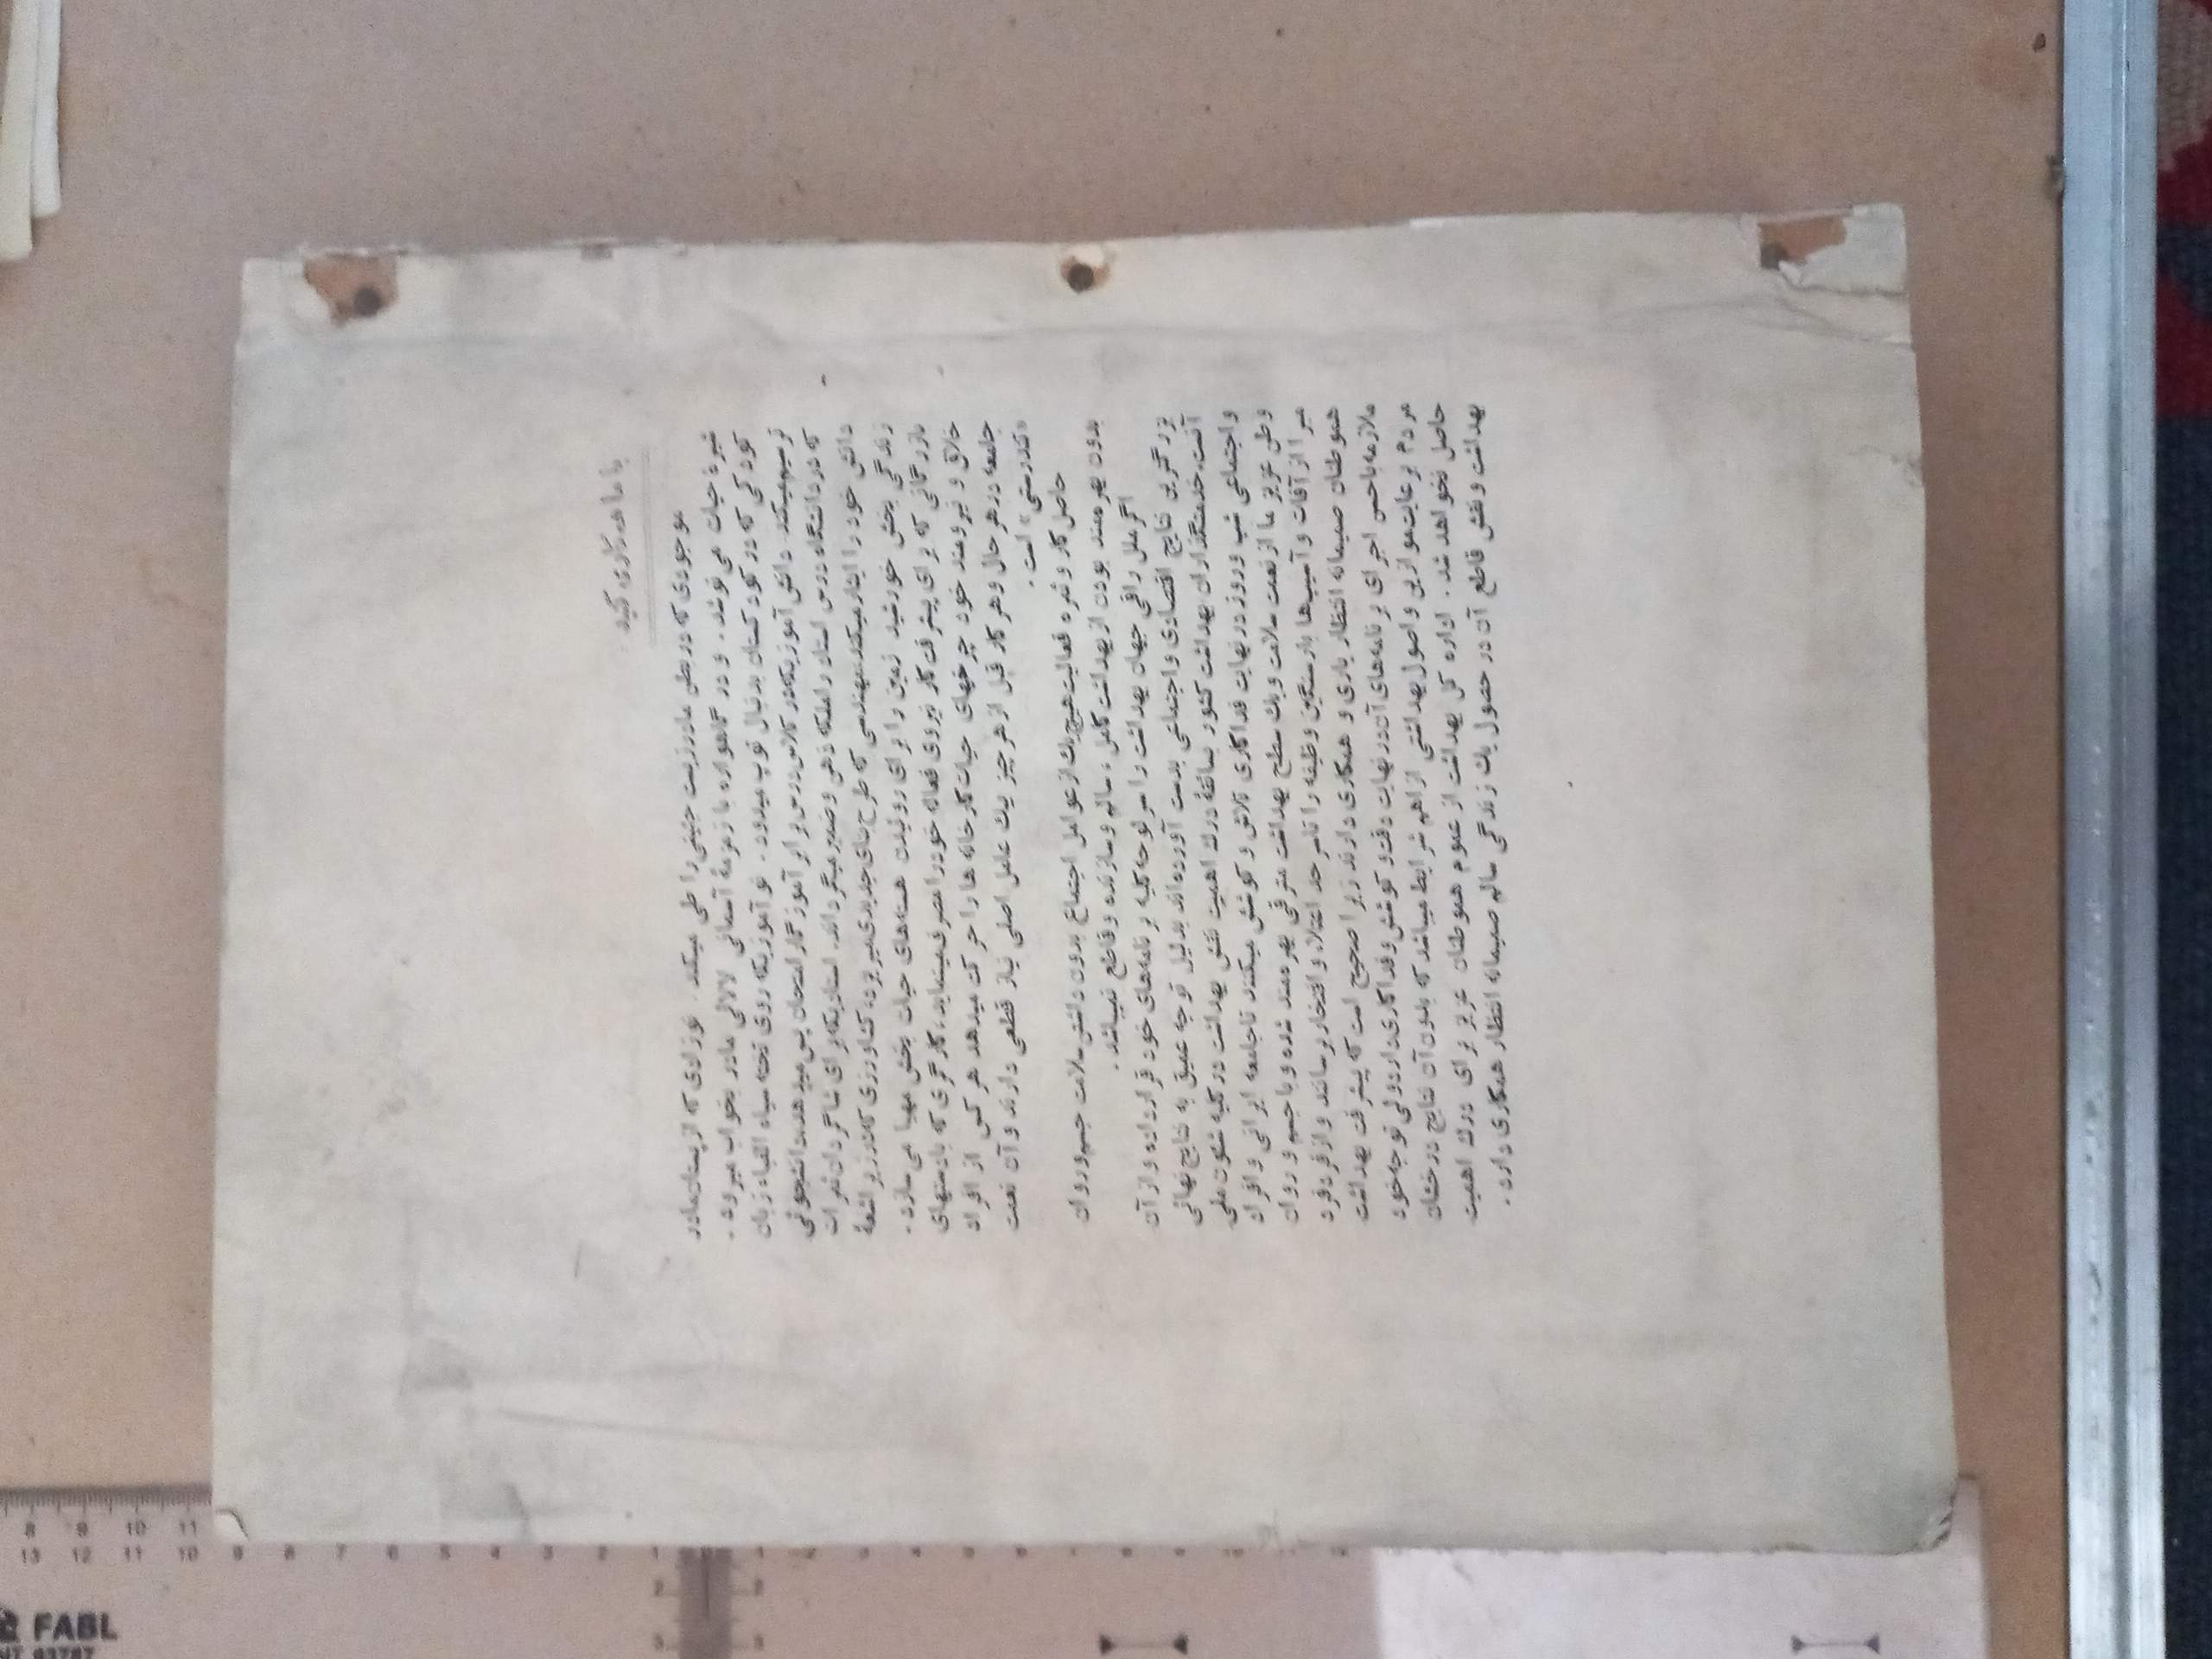 با ما همکاری کنید.
موجودی که در بطن مادر زیست جنینی را طی میکند. نوزادی که از پستان مادر
شیره حیات می نوشد. و در گاهواره با زمزمهٔ آسمانی لالائی مادر بخواب میرود.
کودکی که در کودکستان بدنبال توپ میدود. نوآموزیکه روی تخته سیاه الفباء زبان
ترسیم میکند. دانش آموزیکه در کلاس درس برابر آموزگار امتحان پس میدهد، دانشجوئی
که در دانشگاه درس استاد را ملکه ذهن و ضمیر میگرداند. استادیکه برای شاگردان ثمرات
دانش خود را ایثار میکند، مهندسی که طرح بنای جدیدی میریزد، کشاورزی که در زیر اشعهٔ
زندگی بخش خورشید زمین را برای روئیدن هسته‌های حیات بخش مهیا می سازد.
بازرگانی که برای پیشرفت کار نیروی فعاله خود را مصرف مینماید، کارگری که با دستهای
خلاق و نیرومند خود چرخهای حیات کارخانه ها را حرکت میدهد هر کس از افراد
جامعه در هر حال و هر کار قبل از هر چیز بیک عامل اصلی نیاز قطعی دارند و آن نعمت
«تندرستی» است.
حاصل کار و ثمره فعالیت هیچیک از عوامل اجتماع بدون داشتن سلامت جسم و روان
بدون بهره‌مند بودن از بهداشت کامل، سالم و سازنده و قاطع نمیباشد.
اگر ملل راقی جهان بهداشت را سرلوحه کلیه برنامه‌های خود قرار داده و از آن
بزرگترین نتایج اقتصادی و اجتماعی بدست آورده‌اند بدلیل توجه عمیق به نتایج نهائی
آنست، خدمتگذاران بهداشت کشور بسائقهٔ درک اهمیت نقش بهداشت در کلیه شئون ملی
و اجتماعی شب و روز در نهایت فداکاری تلاش و کوشش میکنند تا جامعه ایرانی و افراد
وطن عزیز ما از نعمت سلامت و یک سطح بهداشت مترقی بهره‌مند شده و با جسم و روان
مبرا از آفات و آسیب‌ها بار سنگین وظیفه را تا سر حد اعتلاء و افتخار برسانند و از فرد فرد
هموطنان صمیمانه انتظار یاری و همکاری دارند زیرا صحیح است که پیشرفت بهداشت
ملازمه با حسن اجرای برنامه‌های آن در نهایت دقت و کوشش و فداکاری دارد ولی توجه خود
مردم برعایت موازین و اصول بهداشتی از اهم شرایط میباشد که بدون آن نتایج درخشان
حاصل نخواهد شد. اداره کل بهداشت از عموم هموطنان عزیز برای درک اهمیت
بهداشت و نقش قاطع آن در حصول یک زندگی سالم صمیمانه انتظار همکاری دارد.
8 9 10 11
13 12 11 10 9 8 7 6 5 4 3 2 1
FABL